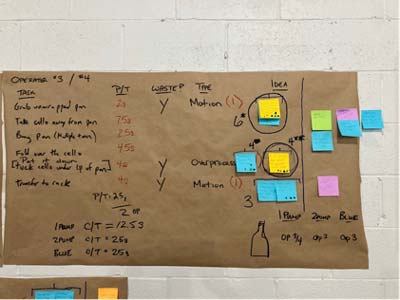 OPERATOR #3 / #4
TASK P/T WASTE? TYPE IDEA
Grab unwrapped pan 2s Y Motion (1) 6*
Take cello away from pan 7.5s
Bang pan (Multiple times) 2.5s
Fold over the cello 4.5s 4* 4**
Put it down
[Tuck cello under lip of pan] 4s Y Overprocess
Transfer to rack 4s Y Motion (1) 3
P/T: 25s
2 OP
1 PUMP C/T = 12.5s
2 PUMP C/T = 25s
BLUE C/T = 25s
1 PUMP 2 PUMP BLUE
OP 3/4 OP 3 OP 3